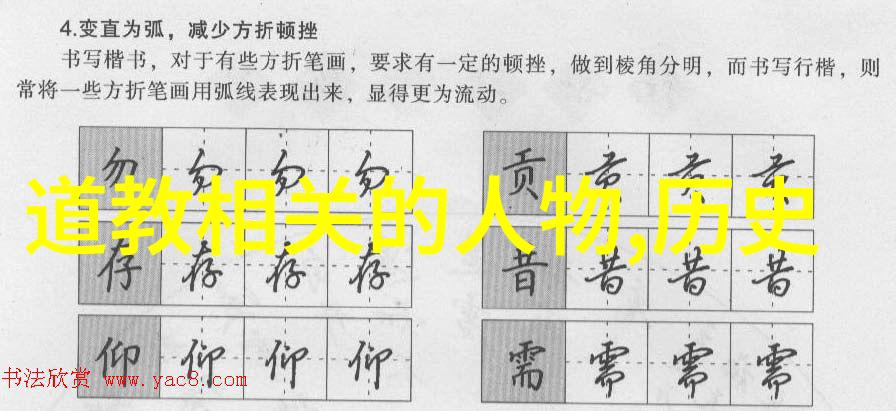 4.变直为弧，减少方折顿挫
书写楷书，对于有些方折笔画，要求有一定的顿挫，做到棱角分明，而书写行楷，则
常将一些方折笔画用弧线表现出来，显得更为流动。
勿 勿 勿 勿 贡 贡 贡 贡
道教相关的人物,历史
存 存 存 存 昔 昔 昔 昔
仰 仰 仰 仰 需 需 需 需
书法欣赏 www.yac8.com